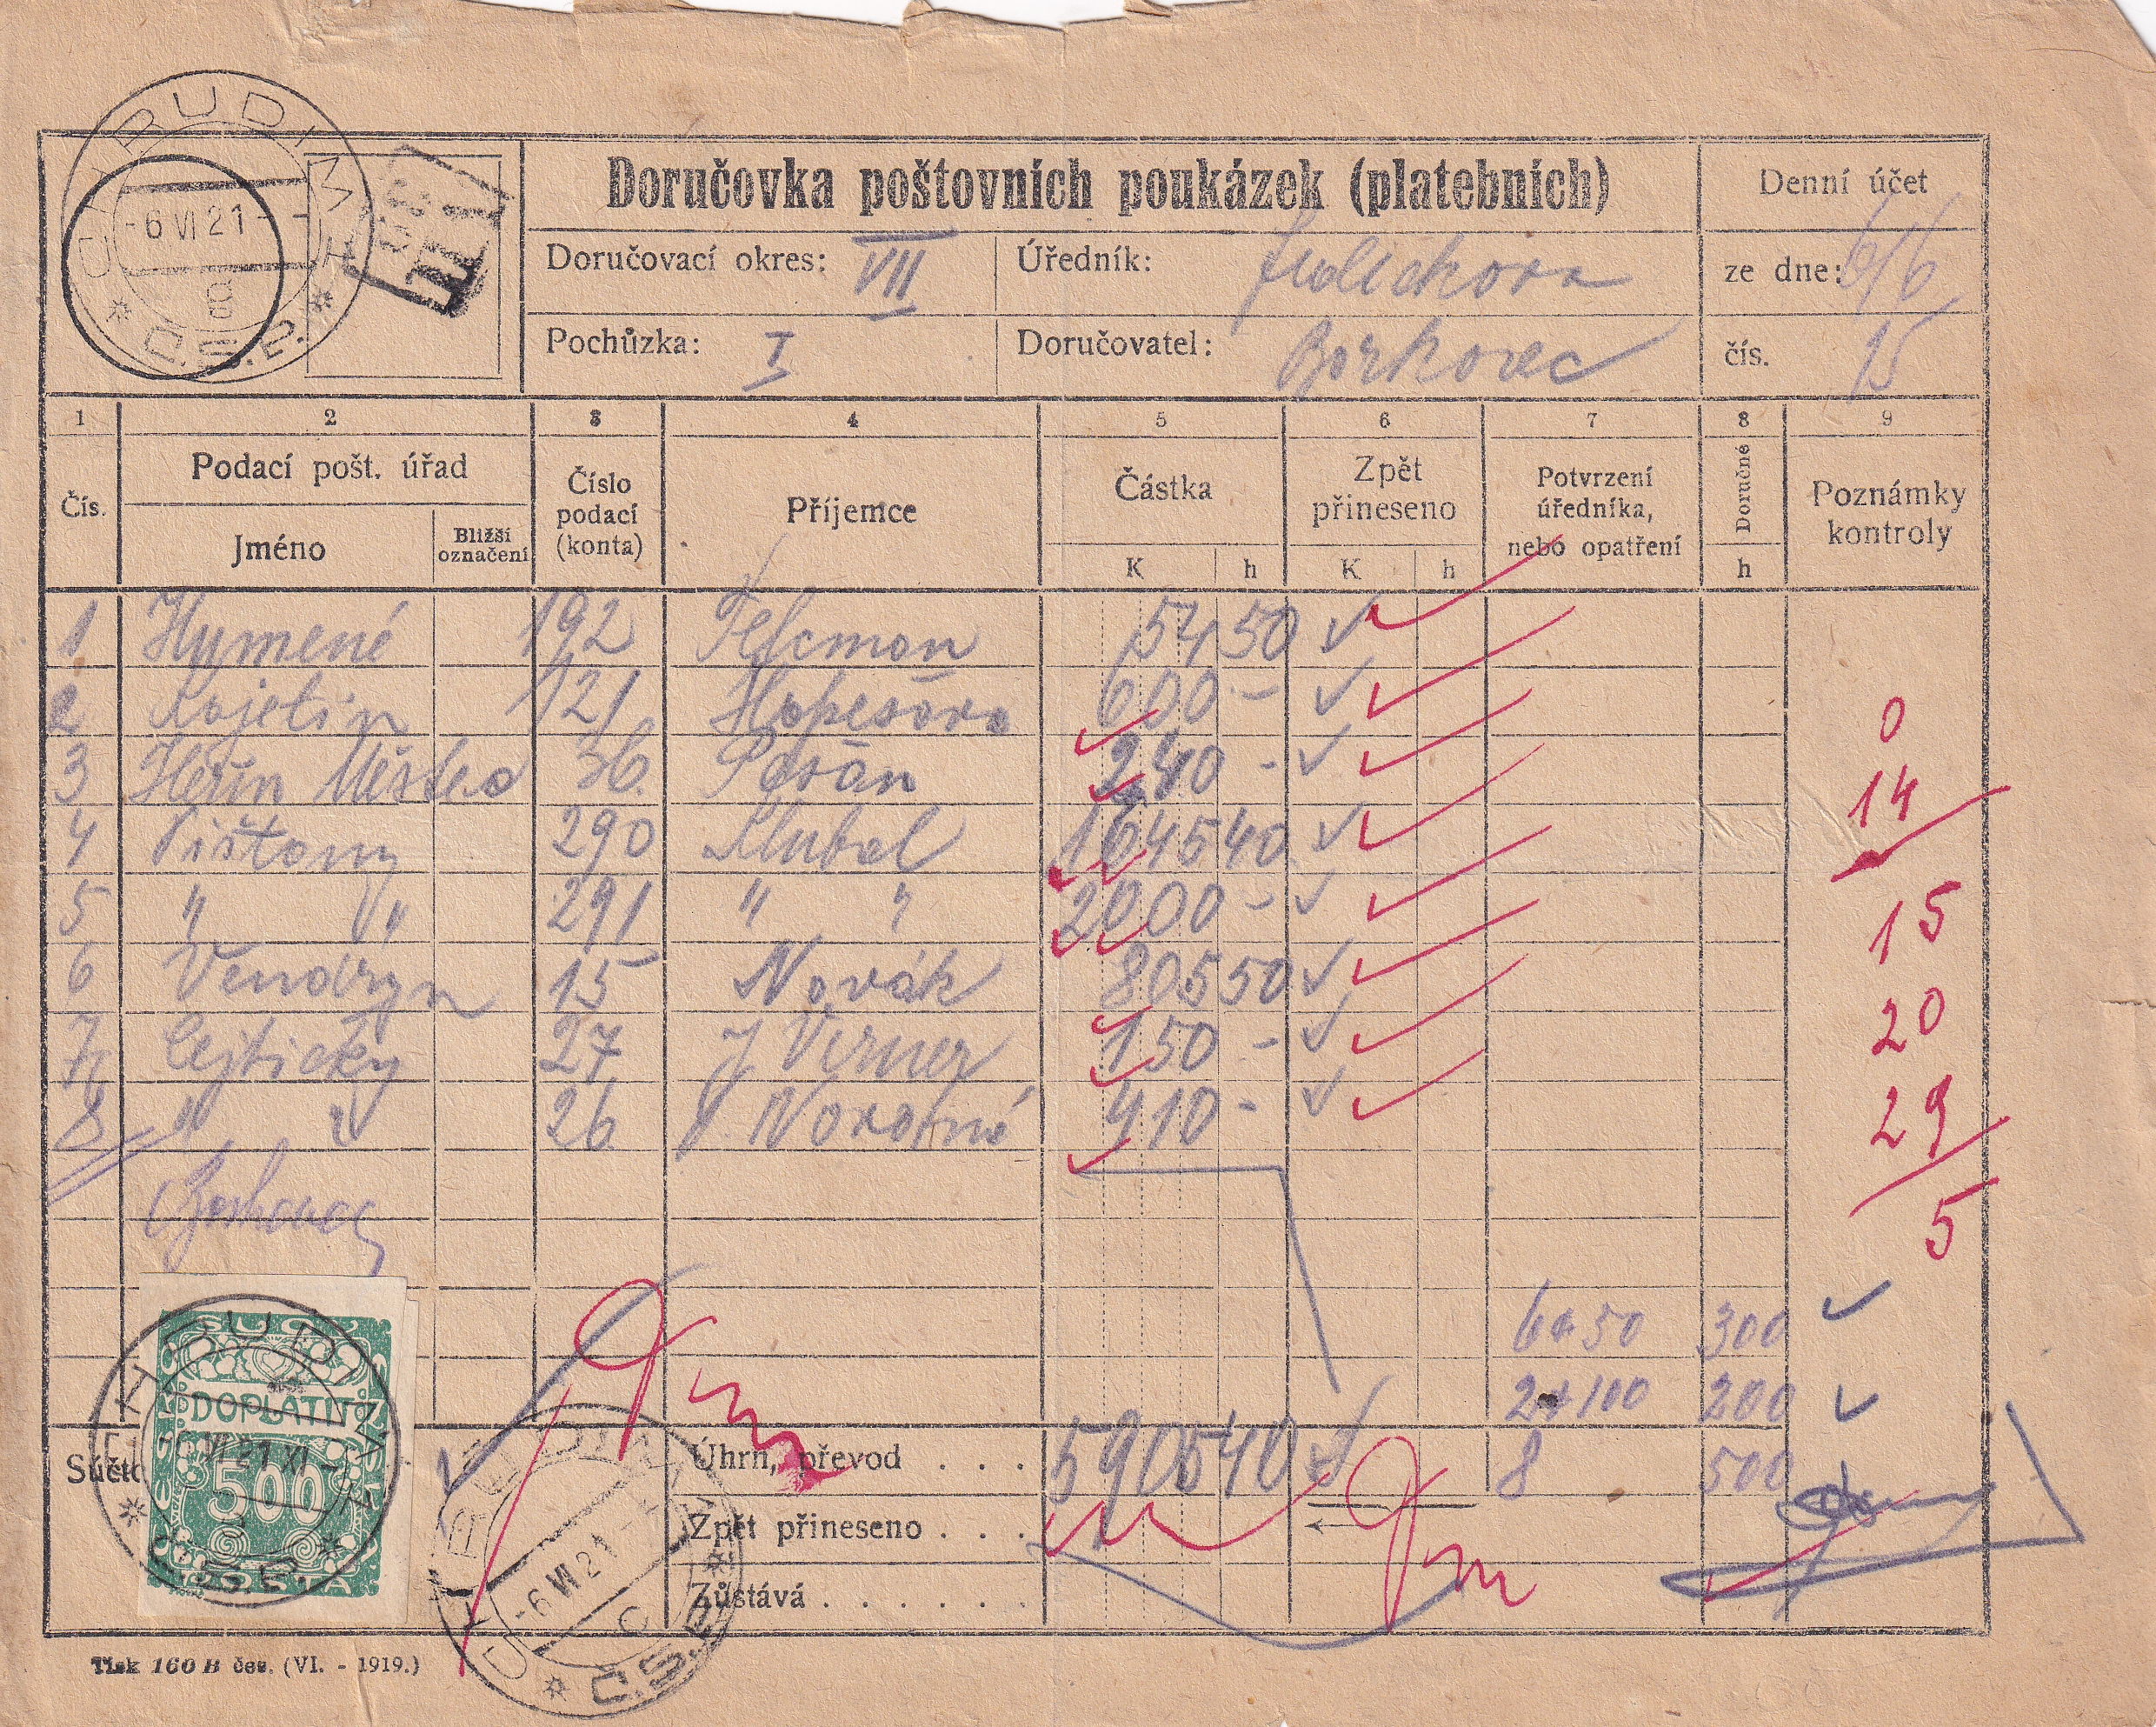 CHRUDIM
-6 VI 21
8
Č.S.P.
Doručovka poštovních poukázek (platebních)
Denní účet
Doručovací okres: VII
Úředník:
ze dne: 6/6
Pochůzka: I
Doručovatel: Borkovec
čís. 15
1 2 3 4 5 6 7 8 9
Čís.
Podací pošt. úřad
Jméno
Bližší označení
Číslo podací (konta)
Příjemce
Částka
K h
Zpět přineseno
K h
Potvrzení úředníka, nebo opatření
Doručné
h
Poznámky kontroly
1 192 54 50
2 Kojetín 121 600 -
0
3 Heřm Městec 36 240 -
14
4 290 1645 40
5 " " 291 " " 2000 -
15
6 Vendryn 15 Novák 805 50
20
7 27 J Verner 150 -
8 " 26 410 -
29
5
Borkovec
6 á 50 300
2 á 100 200
8 500
Úhrn, převod . . . 5905 40
Zpět přineseno . . .
Zůstává . . . . . .
DOPLATIT
500
CHRUDIM
VI 21 XI
CHRUDIM
-6 VI 21
C
Č.S.P.
Tisk 160 B čes. (VI. - 1919.)